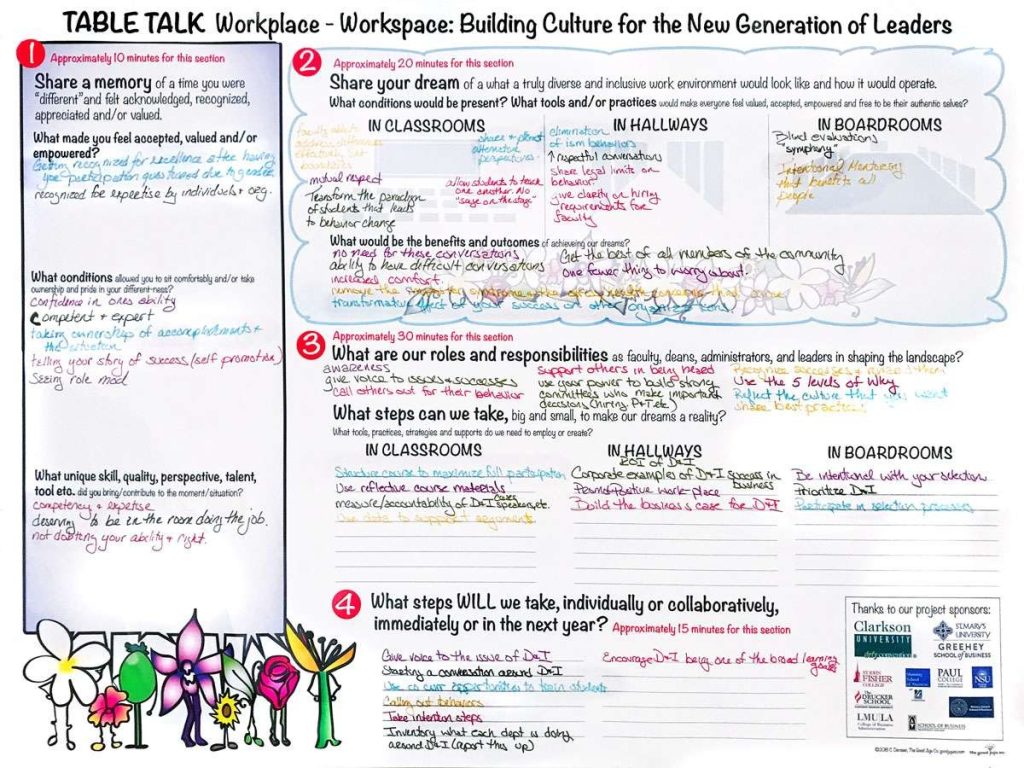 TABLE TALK Workplace - Workspace: Building Culture for the New Generation of Leaders
1 Approximately 10 minutes for this section
Share a memory of a time you were
"different" and felt acknowledged, recognized,
appreciated and/or valued.
What made you feel accepted, valued and/or
empowered?
Getting recognized for excellence after having
your participation questioned due to gender
recognized for expertise by individuals + org.
What conditions allowed you to sit comfortably and/or take
ownership and pride in your different-ness?
Confidence in ones ability
Competent + expert
taking ownership of accomplishments +
the situation
telling your story of success (self promotion)
Seeing role mod
What unique skill, quality, perspective, talent,
tool etc. did you bring/contribute to the moment/situation?
competency + expertise
deserving to be in the room doing the job.
not doubting your ability + right.
2 Approximately 20 minutes for this section
Share your dream of a what a truly diverse and inclusive work environment would look like and how it would operate.
What conditions would be present? What tools and/or practices would make everyone feel valued, accepted, empowered and free to be their authentic selves?
IN CLASSROOMS
faculty able to
address
mutual respect
Transform the paradigm
of students that leads
to behavior change
share + 
alternative
perspectives.
allow students to teach
one another. No
"sage on the stage"
IN HALLWAYS
elimination
of ism behaviors
↑ respectful conversations
share legal limits on
behavior.
give clarity on hiring
requirements for
faculty
IN BOARDROOMS
Blind evaluations
"symphony"
Intentional Mentoring
that benefits all
people
What would be the benefits and outcomes of achieveing our dreams?
no need for these conversations
ability to have difficult conversations
increased comfort.
remove the
transformative effect of your success on other organizations.
Get the best of all members of the community
One fewer thing to worry about.
3 Approximately 30 minutes for this section
What are our roles and responsibilities as faculty, deans, administrators, and leaders in shaping the landscape?
awareness
give voice to issues + successes
Call others out for their behavior
support others in being heard
use your power to build strong
committees who make important
decisions (hiring, P+T etc)
Recognize successes +
Use the 5 levels of Why
Reflect the culture that you want
share best practices
What steps can we take, big and small, to make our dreams a reality?
What tools, practices, strategies and supports do we need to employ or create?
IN CLASSROOMS
Structure course to maximize full participation
Use reflective course materials
measure/accountability of D+I cases, speakers, etc.
Use data to support arguments
IN HALLWAYS
ROI of D+I
Corporate examples of D+I success in
business
work-place
Build the business case for D+I
IN BOARDROOMS
Be intentional with your selection
Prioritize D+I
Participate in selection processes
4 What steps WILL we take, individually or collaboratively,
immediately or in the next year? Approximately 15 minutes for this section
Give voice to the issue of D+I
Starting a conversation around D+I
Use co curr opportunities to train students
Calling out behaviors
Take intention steps
Inventory what each dept is doing
around D+I (report this up)
Encourage D+I being one of the broad learning
goals
Thanks to our project sponsors:
Clarkson
UNIVERSITY
defy convention
ST. MARY'S
UNIVERSITY
GREEHEY
SCHOOL of BUSINESS
ST. JOHN
FISHER
COLLEGE
PAUL
COLLEGE
NSU
THE DRUCKER
SCHOOL
LMULA
College of Business
Administration
SCHOOL OF BUSINESS